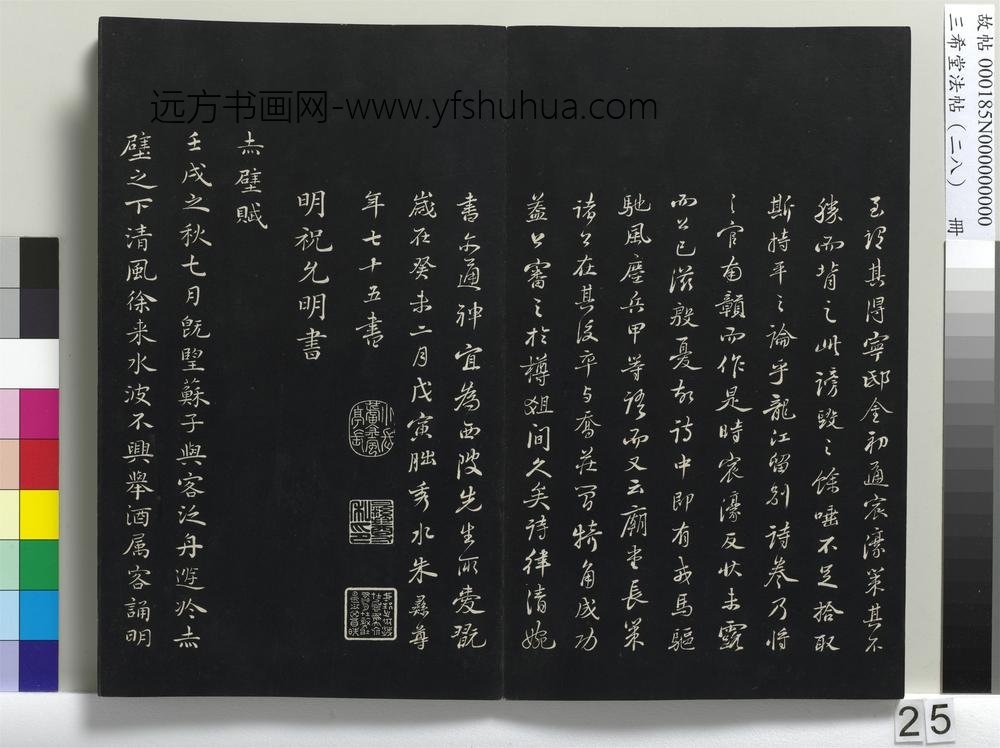 远方书画网-www.yfshuhua.com
故帖 000185N000000000
三希堂法帖（二八） 册
至谓其得寧邸金初通宸濠策其不
勝而背之此謗毀之餘唾不足拾取
斯持平之論乎龍江留別詩卷乃將
之官南贛而作是時宸濠反狀未露
而公已滋殷憂故詩中即有戎馬驅
馳風塵兵甲等語而又云廟堂長策
諸公在其後卒与喬莊簡犄角成功
蓋公審之於樽俎间久矣詩律清婉
書亦通神宜為西陂先生所愛翫
歲在癸未二月戊寅朏秀水朱彝尊
年七十五書
明祝允明書
赤壁賦
壬戌之秋七月既望蘇子與客泛舟遊於赤
壁之下清風徐来水波不興舉酒属客誦明
25